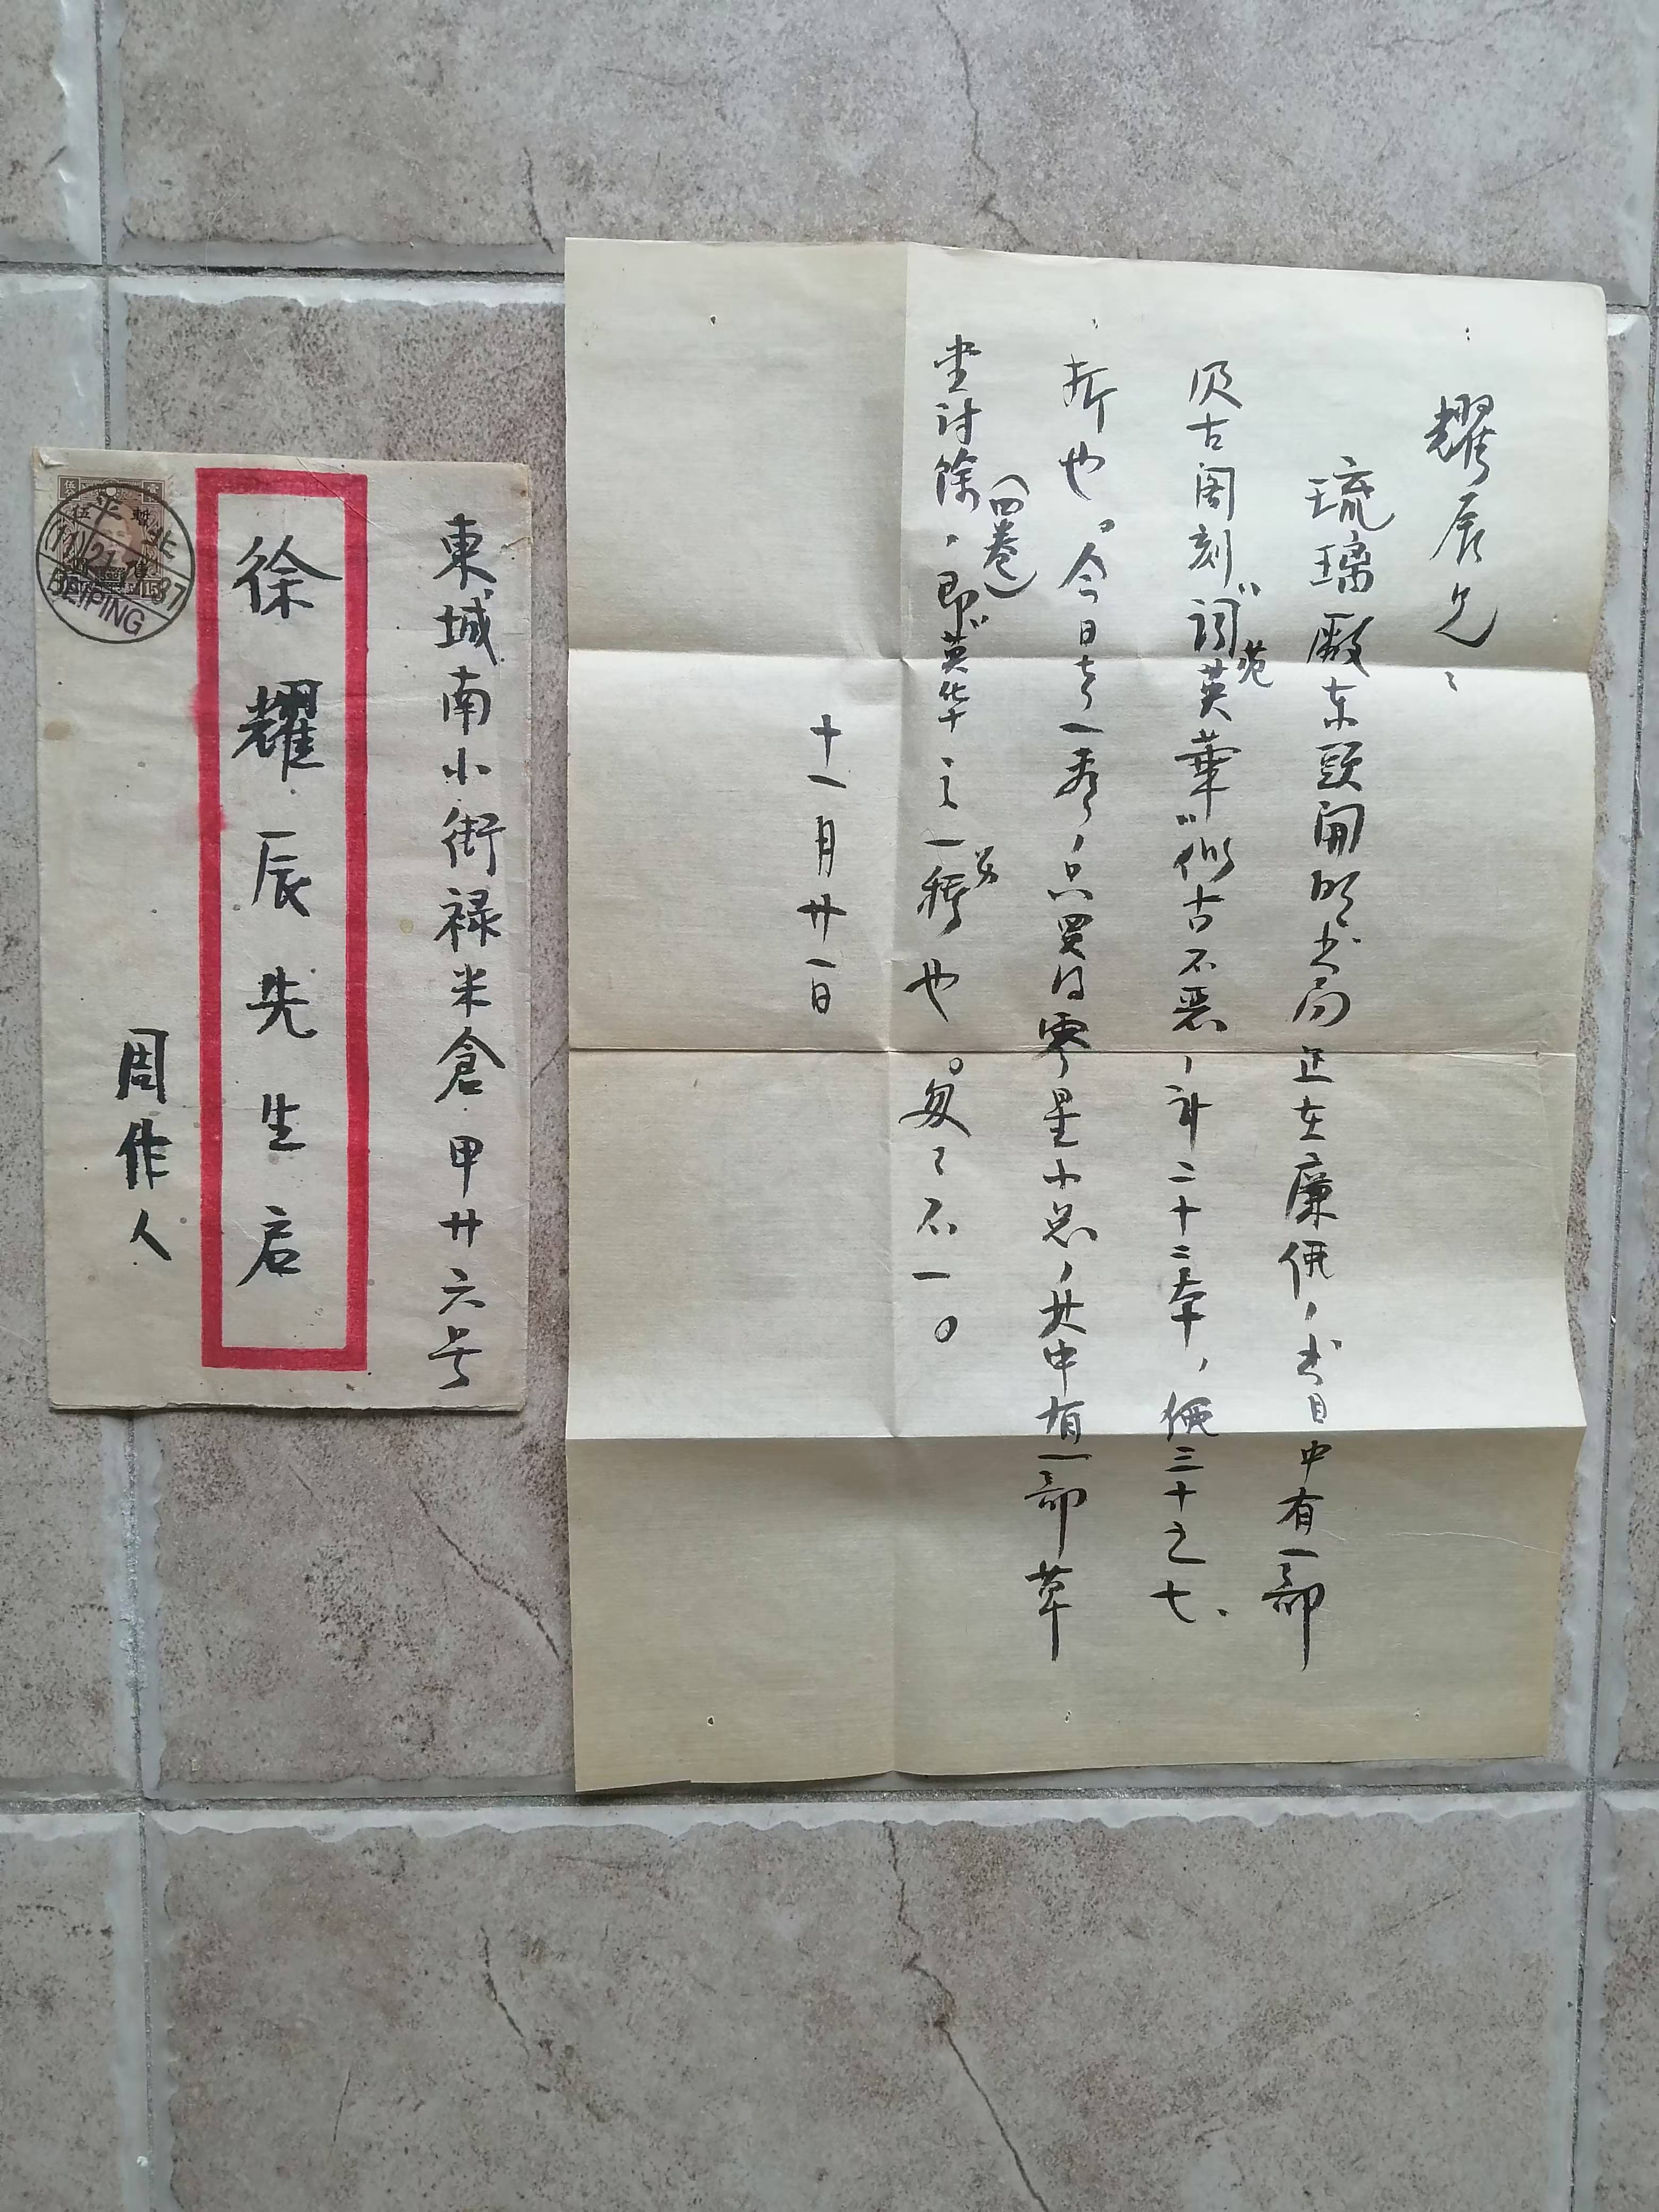 耀辰兄：
琉璃厰东頭開明书局正在廉価，书目中有一部
汲古阁刻“词苑英華”似古不恶，计二十二本，価三十之七
折也。今日去一看，只買得零星小品，其中有一部草
堂詩餘（四卷），即“英华”之一种也。匆々不一。
十一月廿一日
東城南小街禄米倉甲廿六号
徐耀辰先生启
周作人
北平
11 21 37
BEIPING